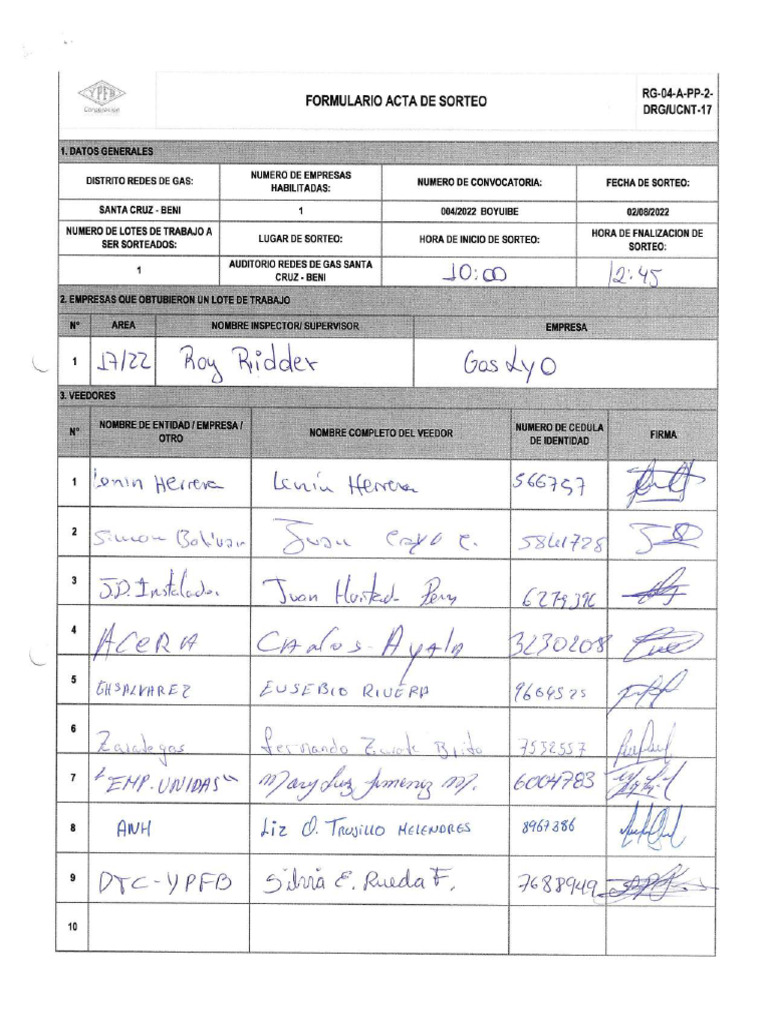 YPFB
Corporación
FORMULARIO ACTA DE SORTEO
RG-04-A-PP-2-
DRG/UCNT-17
1. DATOS GENERALES
DISTRITO REDES DE GAS:
NUMERO DE EMPRESAS
HABILITADAS:
NUMERO DE CONVOCATORIA:
FECHA DE SORTEO:
SANTA CRUZ - BENI
1
004/2022 BOYUIBE
02/08/2022
NUMERO DE LOTES DE TRABAJO A
SER SORTEADOS:
LUGAR DE SORTEO:
HORA DE INICIO DE SORTEO:
HORA DE FNALIZACION DE
SORTEO:
1
AUDITORIO REDES DE GAS SANTA
CRUZ - BENI
10:00
12:45
2. EMPRESAS QUE OBTUBIERON UN LOTE DE TRABAJO
N° AREA NOMBRE INSPECTOR/ SUPERVISOR EMPRESA
1 17/22 Roy Ridder Gas LyO
3. VEEDORES
N°
NOMBRE DE ENTIDAD / EMPRESA /
OTRO
NOMBRE COMPLETO DEL VEEDOR
NUMERO DE CEDULA
DE IDENTIDAD
FIRMA
1 Lenin Herrera Lenin Herrera 566757
2 Simon Bolivar Juan Cayo C. 5841728
3 J.D. Instalador Juan Hurtad 6279396
4 ACERA Carlos Ayala 3230208
5 EHSALVAREZ EUSEBIO RIVERA 9664525
6 Zarategas Fernando Zarate Brito 7532557
7 "EMP. UNIDAS" Mary Luz Jimenez M. 6004783
8 ANH Liz O. Trujillo Melendres 8967386
9 DTC-YPFB Silvia E. Rueda F. 7688949
10